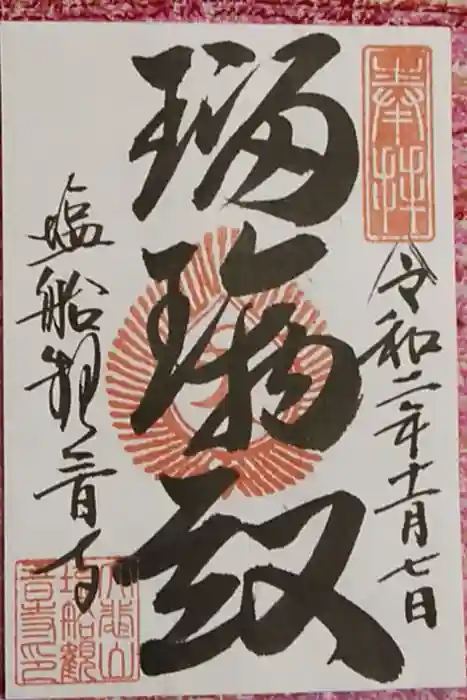 奉拝
令和二年十一月七日
瑠璃殿
塩船観音寺
大悲山
塩船観
音寺印